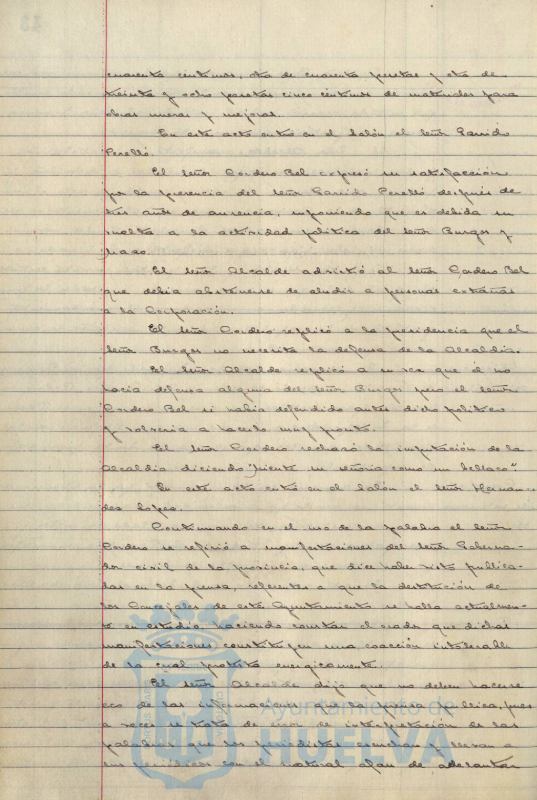 cuarenta céntimos, otra de cuarenta pesetas y otra de
treinta y ocho pesetas cinco céntimos de materiales para
obras nuevas y mejoras.
En este acto entró en el Salón el Señor Garrido
Perelló.
El Señor Cordero Bel expresó su satisfacción
por la presencia del Señor Garrido Perelló después de
tres años de ausencia, suponiendo que es debida su
vuelta a la actividad política del Señor Burgos y
Mazo.
El Señor Alcalde advirtió al Señor Cordero Bel
que debía abstenerse de aludir a personas extrañas
a la Corporación.
El Señor Cordero replicó a la presidencia que el
Señor Burgos no necesita la defensa de la Alcaldía.
El Señor Alcalde replicó a su vez que él no
hacía defensa alguna del Señor Burgos pero el Señor
Cordero Bel si había defendido antes dicho político
y volvería a hacerlo muy pronto.
El Señor Cordero rechazó la imputación de la
Alcaldía diciendo "miente su señoría como un bellaco".
En este acto entró en el Salón el Señor Hernan-
dez Lopez.
Continuando en el uso de la palabra el Señor
Cordero se refirió a manifestaciones del Señor Goberna-
dor civil de la provincia, que dice haber visto publica-
das en la prensa, referentes a que la destitución de
los Concejales de este Ayuntamiento se halla actualmen-
te en estudio haciendo constar el orador que dichas
manifestaciones constituyen una coacción intolerable
de la cual protesta energicamente.
El Señor Alcalde dijo que no deben hacerse
eco de las informaciones que la prensa publica, pues
a veces se trata de error de interpretación de las
palabras que los periodistas escuchan y llevan a
sus periódicos con el natural afan de adelantar
Ayuntamiento de
HUELVA